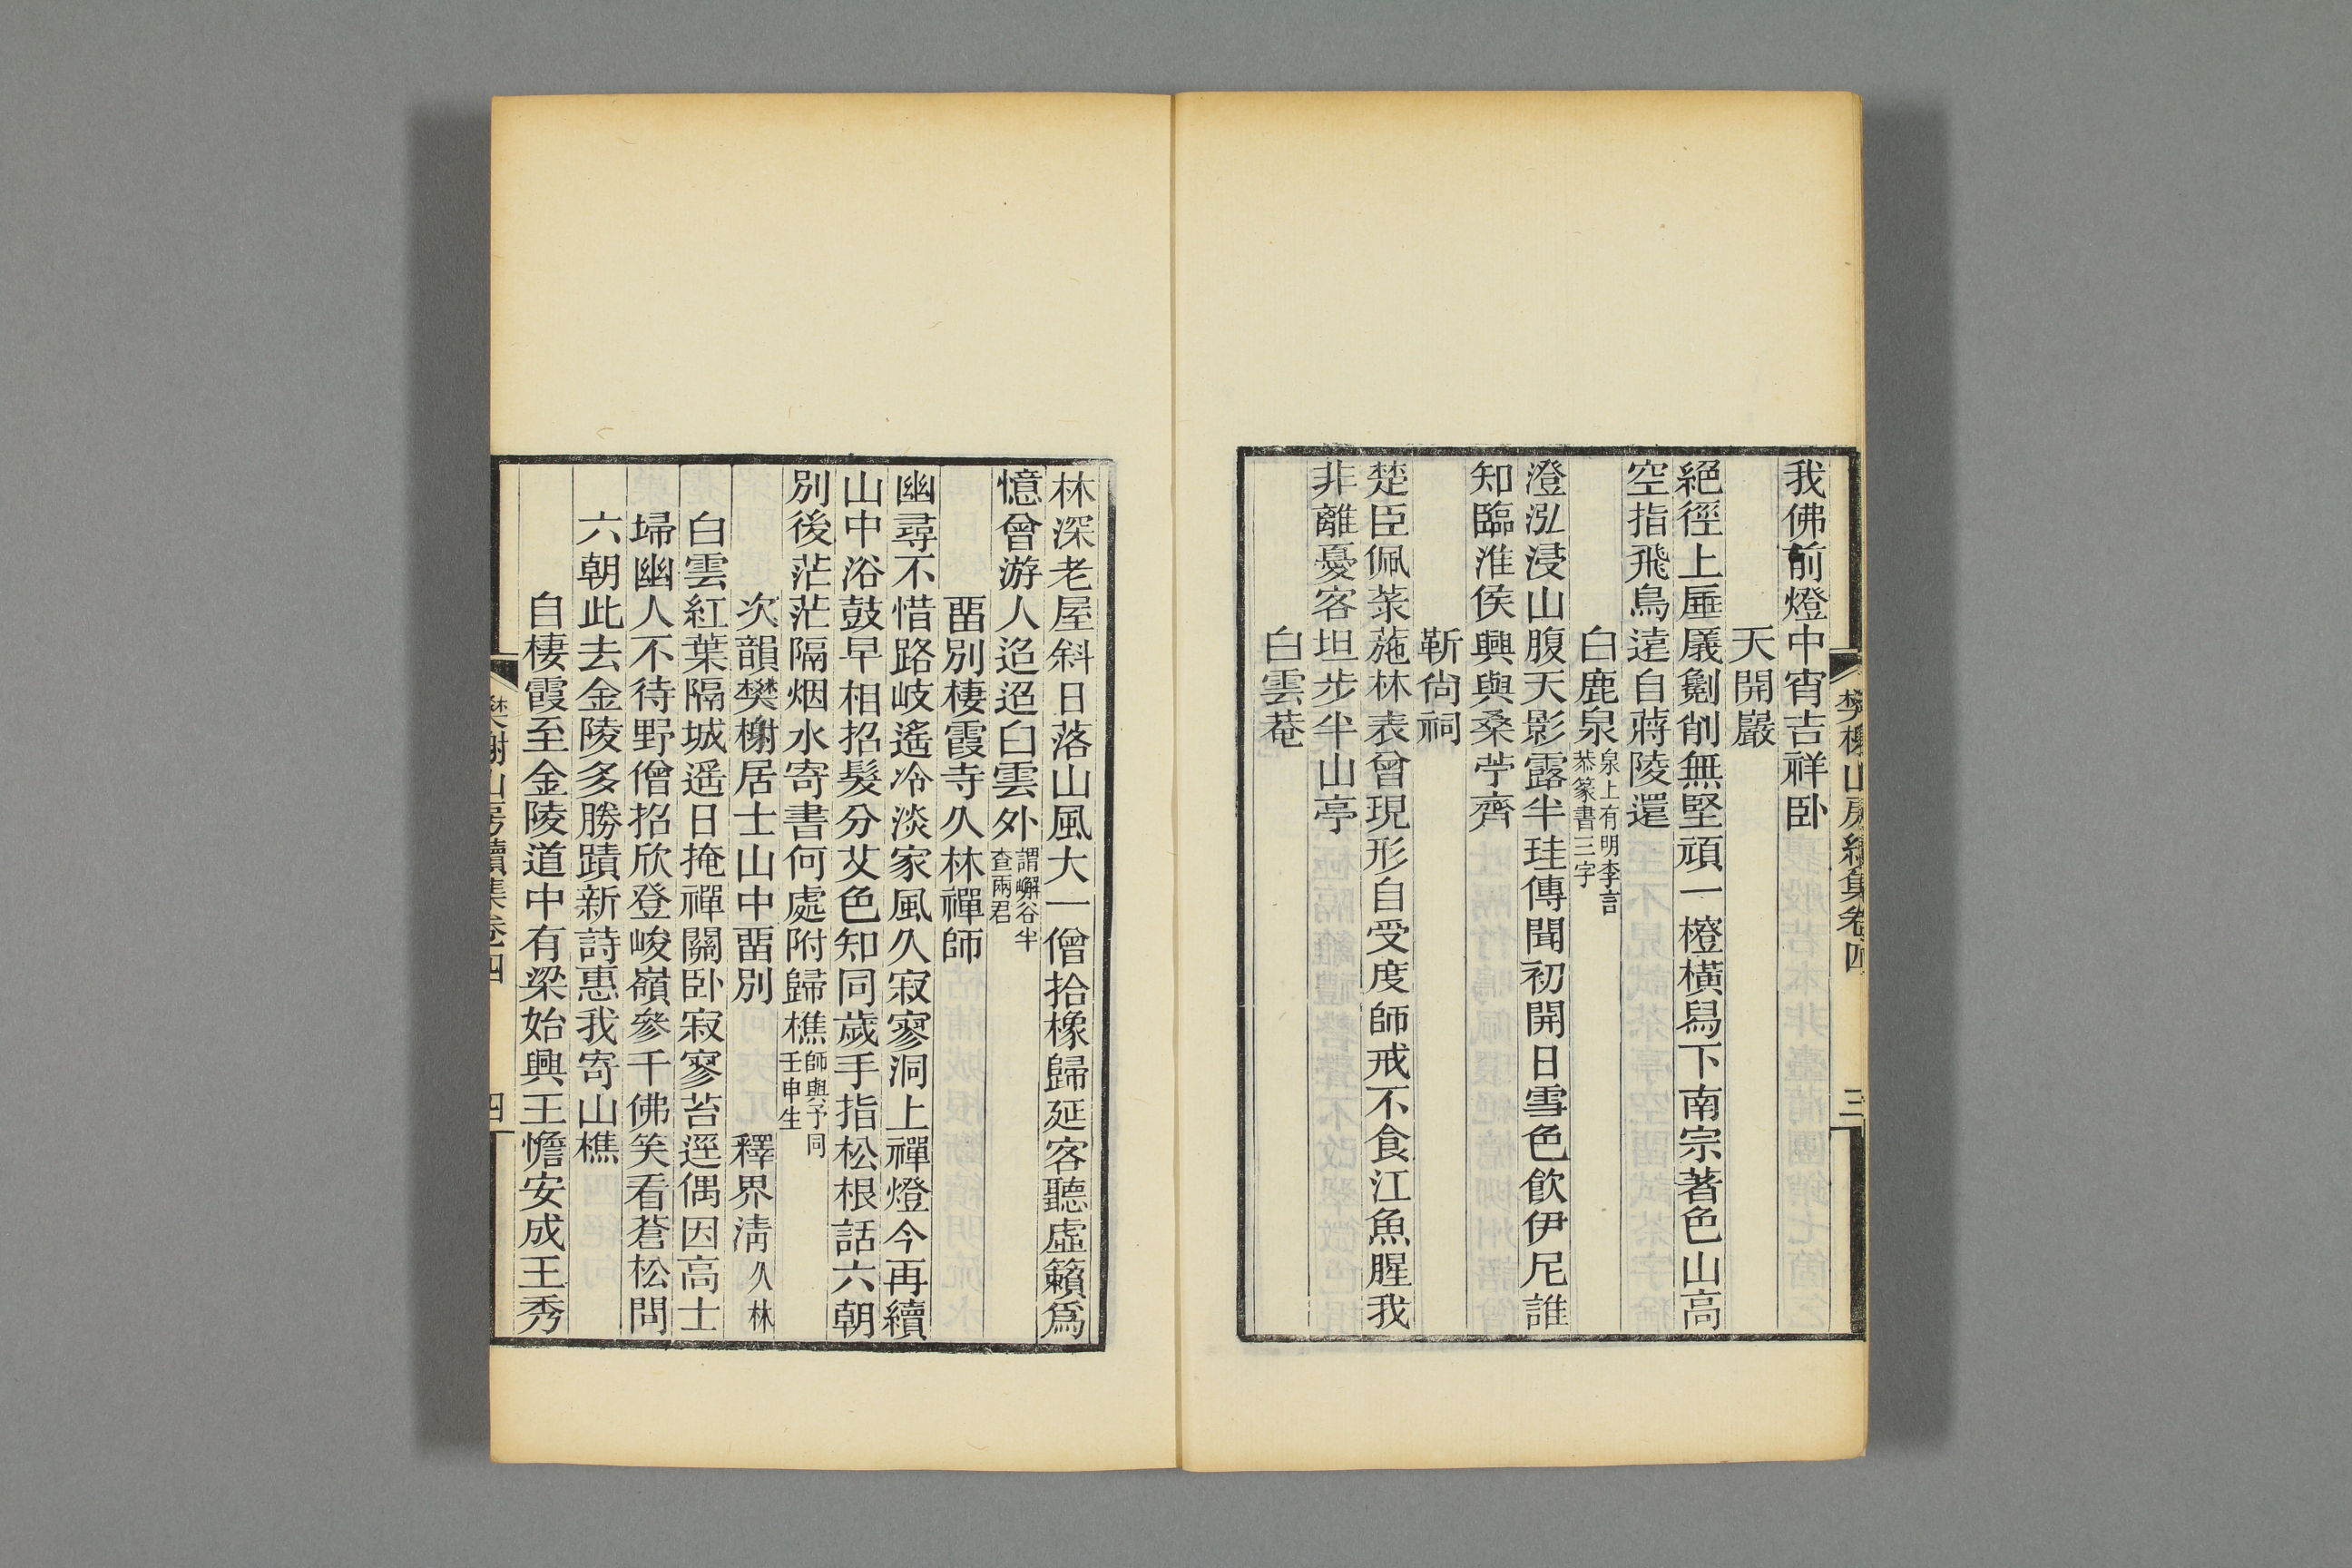 樊榭山房續集卷四
三
我佛前燈中宵吉祥卧
天開巖
絕徑上厜㕒劖削無堅頑一橙橫舄下南宗著色山高
空指飛鳥遠自蔣陵還
白鹿泉泉上有明李言恭篆書三字
澄泓浸山腹天影露半珪傳聞初開日雪色飲伊尼誰
知臨淮侯興與桑苧齊
靳尙祠
楚臣佩菉葹林表曾現形自受度師戒不食江魚腥我
非離憂客坦步半山亭
白雲菴
林深老屋斜日落山風大一僧拾橡歸延客聽虛籟爲
憶曾游人迢迢白雲外謂嶰谷半查兩君
畱別棲霞寺久林禪師
幽尋不惜路岐遙冷淡家風久寂寥洞上禪燈今再續
山中浴鼓早相招髮分艾色知同歲手指松根話六朝
別後茫茫隔烟水寄書何處附歸樵師與予同壬申生
次韻樊榭居士山中畱別 釋界淸久林
白雲紅葉隔城遥日掩禪關卧寂寥苔逕偶因高士
埽幽人不待野僧招欣登峻嶺參千佛笑看蒼松問
六朝此去金陵多勝蹟新詩惠我寄山樵
自棲霞至金陵道中有梁始興王憺安成王秀
樊榭山房續集卷四
四